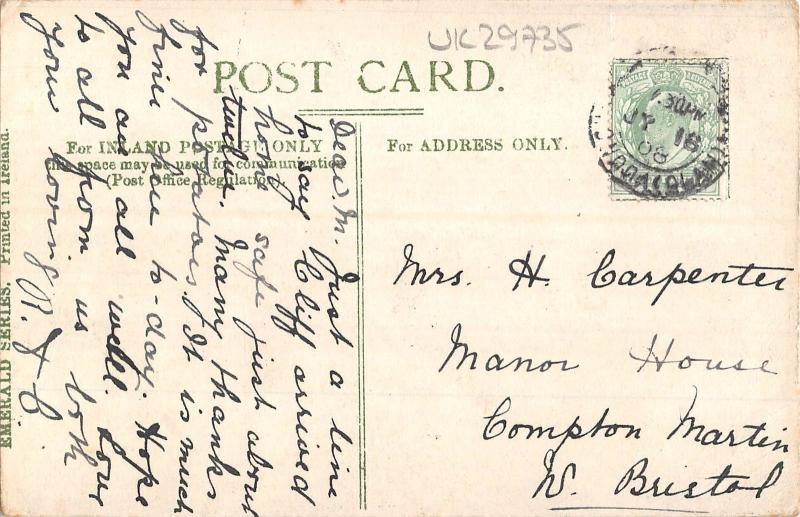 UK29735
POST CARD.
For INLAND POSTAGE ONLY
this space may be used for communication
(Post Office Regulation)
For ADDRESS ONLY.
EMERALD SERIES. Printed in Ireland.
30PM
JY 16
08
Dear M. Just a line
to say Cliff arrived
here safe just about
twelve. Many thanks
for potatoes. It is much
finer here to-day. Hope
you are all well. Love
to all from us both
Your loving R. & C.
Mrs. H. Carpenter
Manor House
Compton Martin
N. Bristol